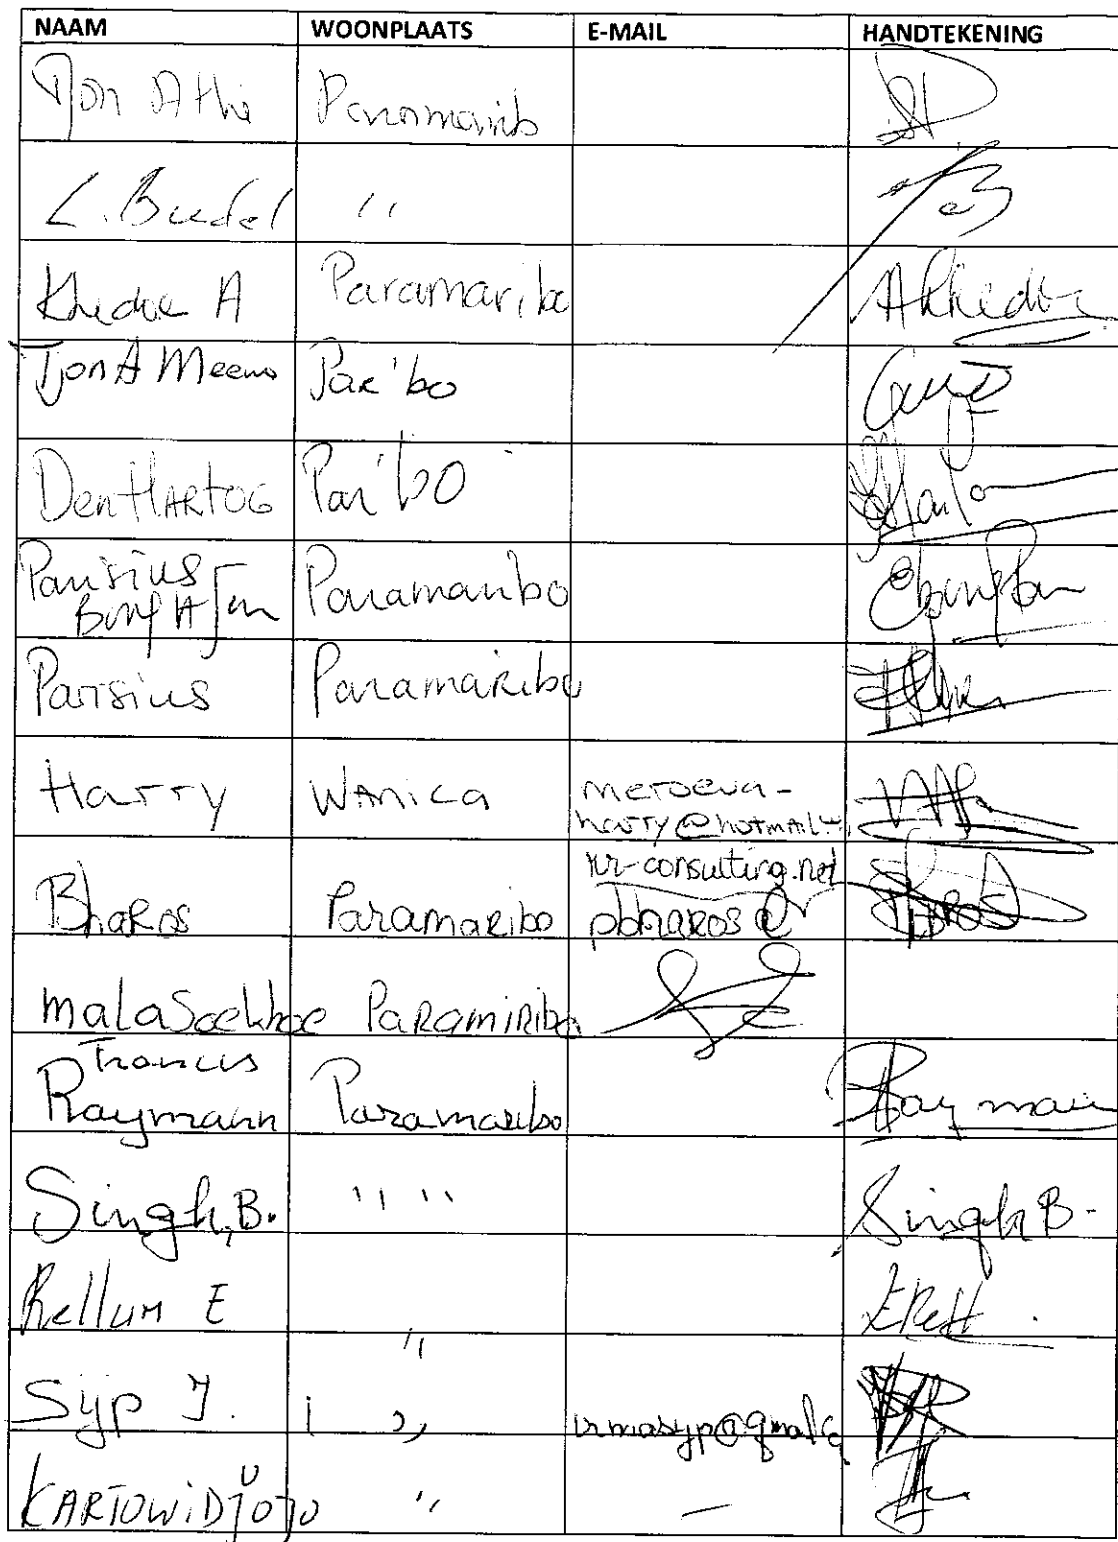 NAAM WOONPLAATS E-MAIL HANDTEKENING
Tjon Athi Paramaribo
L. Budel "
Khedoe A Paramaribo AKhedoe
Tjon A Meeuw Par'bo
Den HARTOG Par'bo
Parisius
Bong A Jan Paramaribo
Parisius Paramaribo
Harry WANiCa meroeva-
harry@hotmail
Bharos Paramaribo pbharos@
kr-consulting.net
mala Soekhoe PARAMIRibo
Francis
Raymann Paramaribo Raymann
Singh, B. " " Singh B.
Rellum E "
Sijp I. " irmasyp@gmail.c
KARTOWiDjojo " —